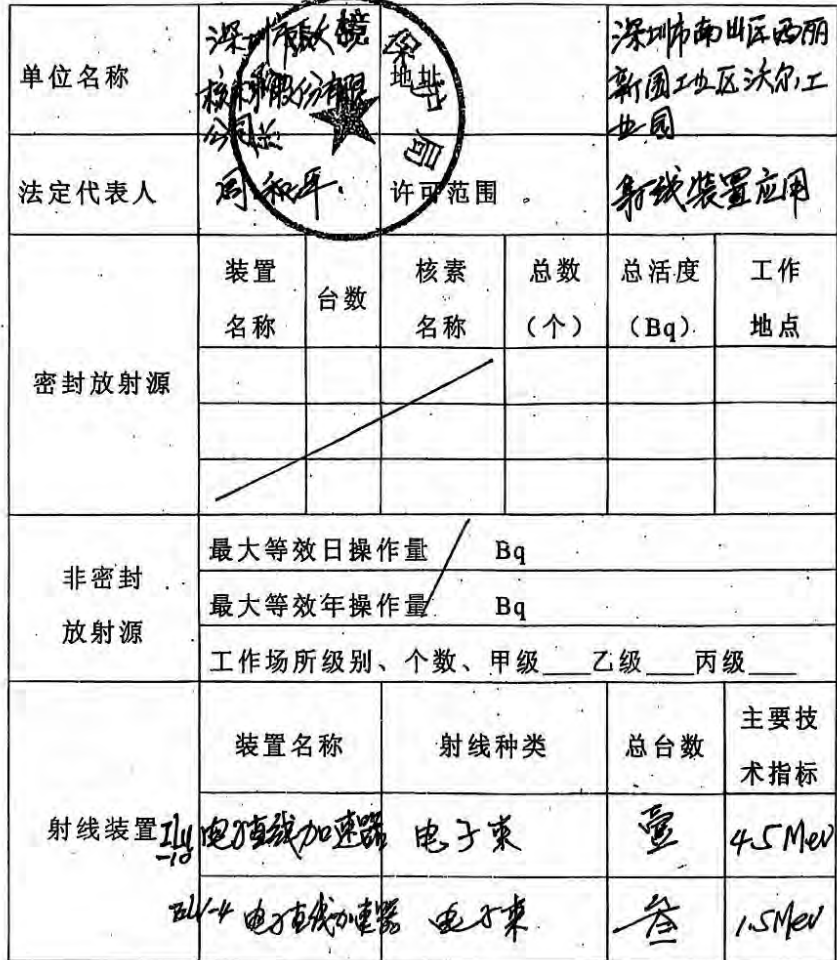 单位名称
深圳市
核材料股份有限
公司
地址
深圳市南山区西丽
新围工业区沃尔工
业园
保护局
法定代表人
周和平
许可范围
射线装置应用
密封放射源
装置
名称
台数
核素
名称
总数
(个)
总活度
(Bq)
工作
地点
非密封
放射源
最大等效日操作量 Bq
最大等效年操作量 Bq
工作场所级别、个数、甲级___乙级___丙级___
射线装置
装置名称
射线种类
总台数
主要技
术指标
ILU
-10
电子直线加速器
电子束
壹
4.5 MeV
ELV-4
电子直线加速器
电子束
叁
1.5MeV